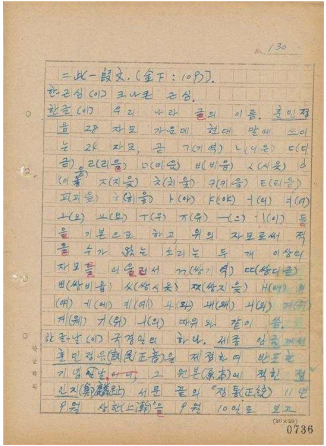 130
二.此一段文. (금下: 109).
한글(이) 우리 나라 글의 이름. 훈민정
음 28 자모 가운데 현대 말에 쓰이
는 24 자모, 곧 ㄱ(기역) ㄴ(니은) ㄷ(디
귿) ㄹ(리을) ㅁ(미음) ㅂ(비읍) ㅅ(시옷) ㅇ
(이응) ㅈ(지읒) ㅊ(치읓) ㅋ(키읔) ㅌ(티읕)
ㅍ(피읖) ㅎ(히읗) ㅏ(아) ㅑ(야) ㅓ(어) ㅕ(여)
ㅗ(오) ㅛ(요) ㅜ(우) ㅠ(유) ㅡ(으) ㅣ(이) 들
을 기본으로 하고 위의 자모로써 적
을 수가 없는 소리는 두 개 이상의
자모를 어울러서 ㄲ(쌍기역) ㄸ(쌍디귿)
ㅃ(쌍비읍) ㅆ(쌍시옷) ㅉ(쌍지읒) ㅐ(애)
따위와 같이 씀.
한글날(이) 국경일의 하나. 세종 임금께서
훈민정음(訓民正音)을 제정하여 반포한
기념
인지(鄭麟趾) 서문 끝의 "정통(正統) 11년
9월 상한(上澣)"을 9월 10일로 보고
0736